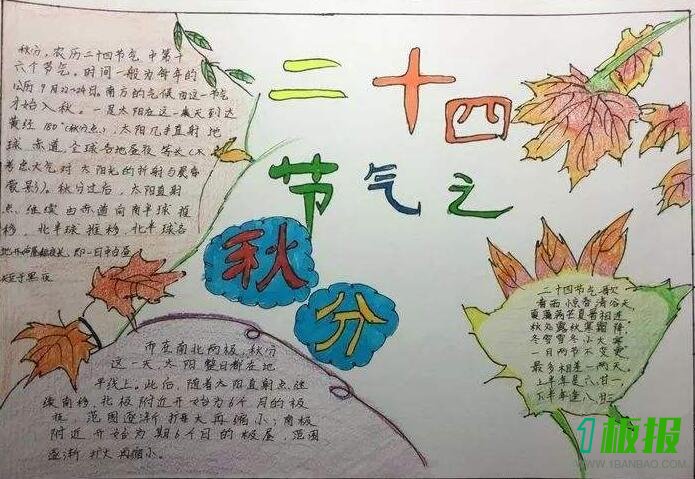 二十四
节气之
秋分
秋分，农历二十四节气中第十
六个节气。时间一般为每年的
公历9月22-24日。南方的气候由这一节气
才始入秋。一是太阳在这一天到达
黄经180°(秋分点)，太阳几乎直射地
球赤道，全球各地昼夜等长(不
考虑大气对太阳光的折射与晨昏
蒙影)。秋分过后，太阳直射
点继续由赤道向南半球推
移，北半球各
地开始昼短夜长，即一日中白昼
短于黑夜
而在南北两极，秋分
这一天太阳整日都在地
平线上。此后，随着太阳直射点继
续南移，北极附近开始为6个月的极
夜，范围逐渐扩大再缩小；南极
附近开始为期6个月的极昼，范围
逐渐扩大再缩小。
二十四节气歌
春雨惊春清谷天
夏满芒夏暑相连
秋处露秋寒霜降
冬雪雪冬小大寒
一月两节不变更
最多相差一两天
上半年是六、廿一
下半年逢八、廿三
1板报
WWW.1BANBAO.COM